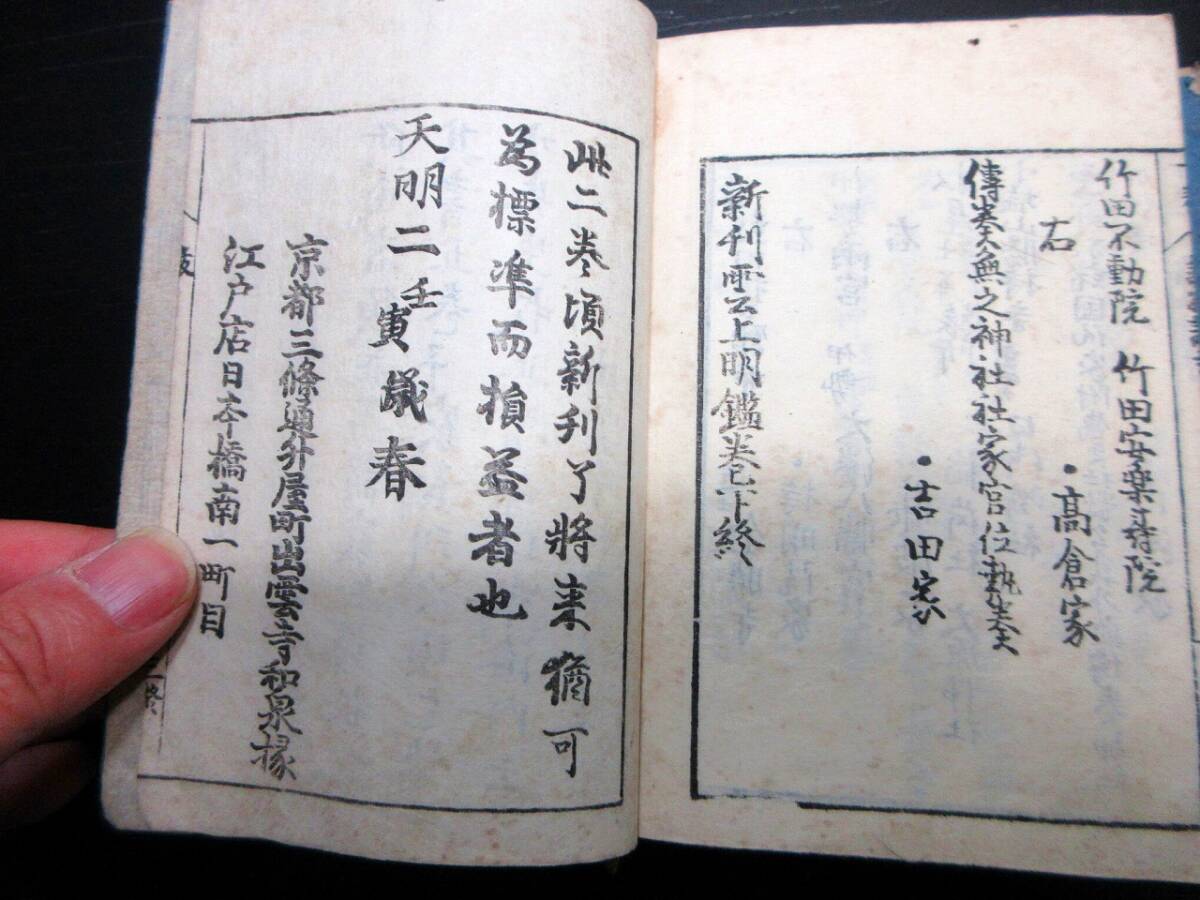 竹田不動院 竹田安樂壽院
右
・高倉家
傳奏無之神社社家官位執奏
・吉田家
新刊雲上明鑑卷下終
此二卷頃新刊了將來猶可
為標準而損益者也
天明二壬寅歳春
京都三條通升屋町出雲寺和泉掾
江戸店日本橋南一町目